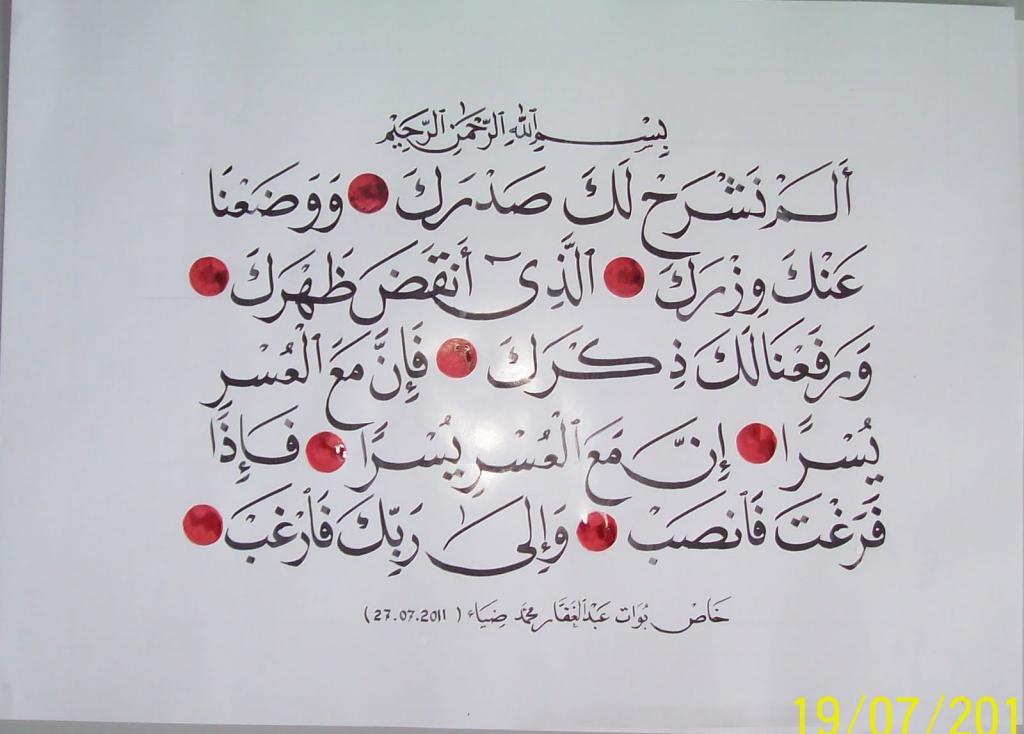 بِسْمِ ٱللّٰهِ ٱلرَّحْمٰنِ ٱلرَّحِيْمِ
أَلَمْ نَشْرَحْ لَكَ صَدْرَكَ وَوَضَعْنَا
عَنْكَ وِزْرَكَ ٱلَّذِىٓ أَنقَضَ ظَهْرَكَ
وَرَفَعْنَا لَكَ ذِكْرَكَ فَإِنَّ مَعَ ٱلْعُسْرِ
يُسْرًا إِنَّ مَعَ ٱلْعُسْرِ يُسْرًا فَإِذَا
فَرَغْتَ فَٱنصَبْ وَإِلىٰ رَبِّكَ فَٱرْغَبْ
خَاصْ بُوَات عَبْدُالغَفَّار مُحَمَّد ضِيَاء (27.07.2011)
19/07/201